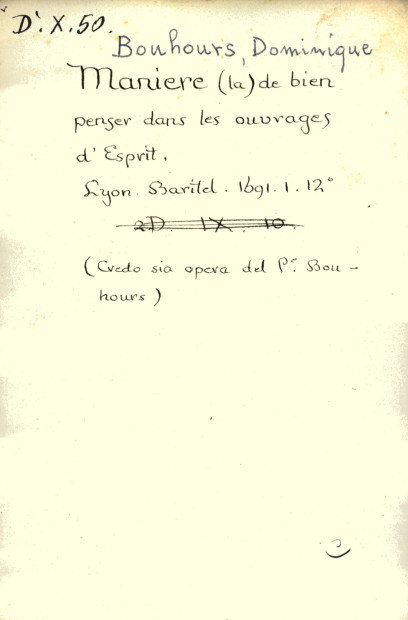 D'. X. 50.
Bouhours, Dominique
Maniere (la) de bien
penser dans les ouvrages
d'Esprit.
Lyon. Baritel. 1691. 1. 12°
2D. IX. 10.
(Credo sia opera del P.e Bou-
hours)